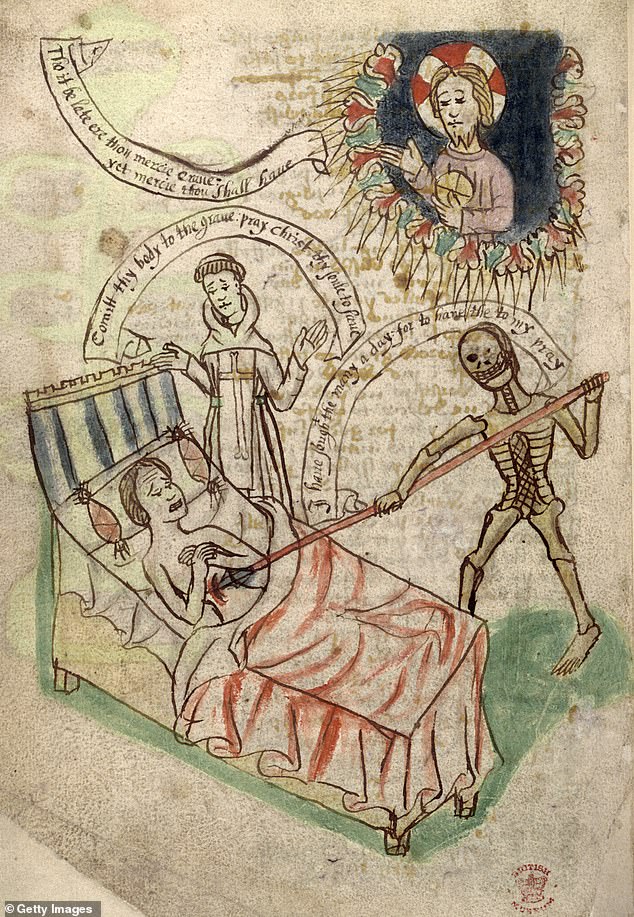 Tho it be late ere thou mercie crave:
yet mercie thou shall have
Comitt thy body to the grave: pray christ thy soule to saue
I have sough the many a day: for to have the to my pray
BRITISH
MUSEUM
©Getty Images